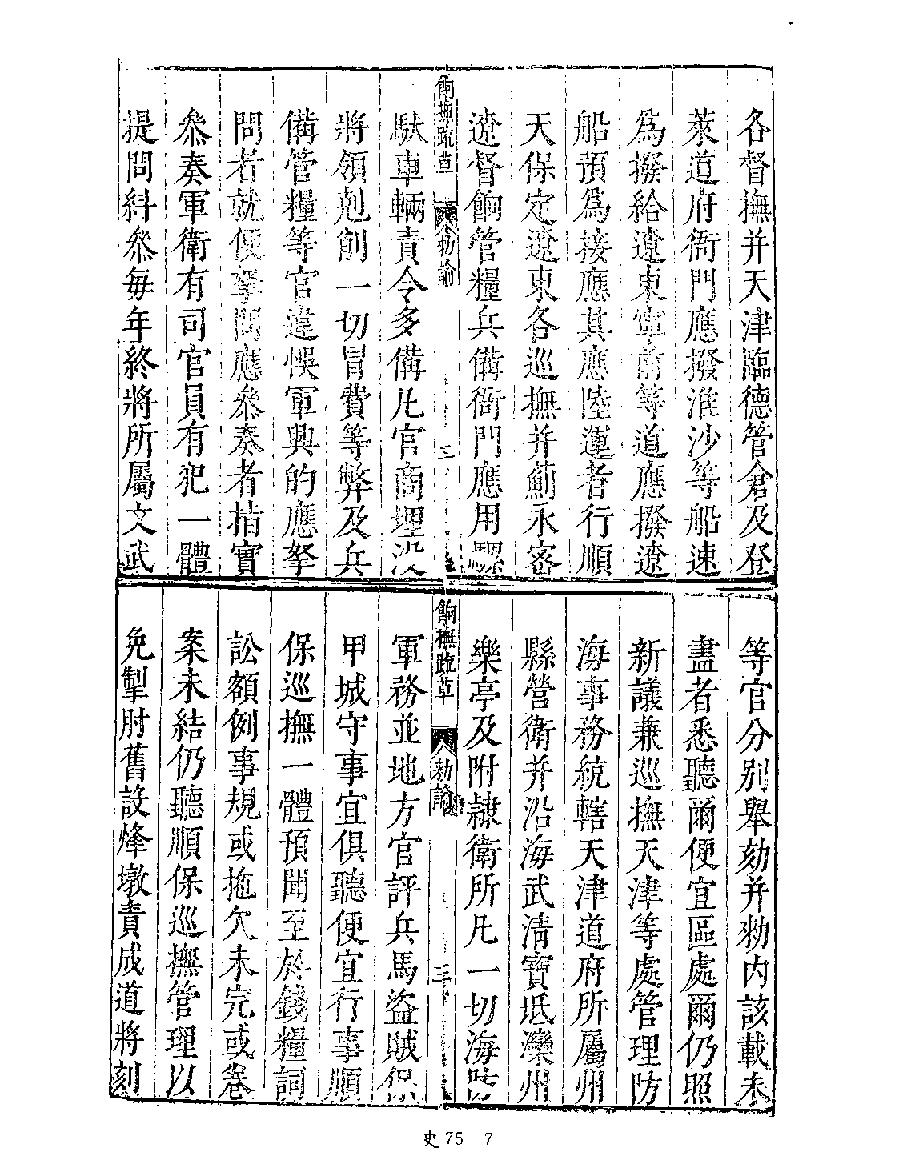 各督撫并天津臨德管倉及登
萊道府衙門應撥淮沙等船速
為撥給遼東寧前等道應撥遼
船預為接應其應陸運者行順
天保定遼東各巡撫并薊永密
遼督餉管糧兵備衙門應用騾
馱車輛責令多備凡官商埋沒
將領剋削一切冒費等弊及兵
備管糧等官違悞軍興的應拏
問者就便拏問應叅奏者指實
叅奏軍衛有司官員有犯一體
提問糾叅每年終將所屬文武
餉撫疏草
勑諭
二
等官分別舉劾并勑內該載未
盡者悉聽爾便宜區處爾仍照
新議兼巡撫天津等處管理防
海事務統轄天津道府所屬州
縣營衛并沿海武清寶坻灤州
樂亭及附隷衛所凡一切海防
軍務並地方官評兵馬盜賊保
甲城守事宜俱聽便宜行事順
保巡撫一體預聞至於錢糧詞
訟額例事規或拖欠未完或卷
案未結仍聽順保巡撫管理以
免掣肘舊設烽墩責成道將刻
餉撫疏草
勑諭
三
史 75 7